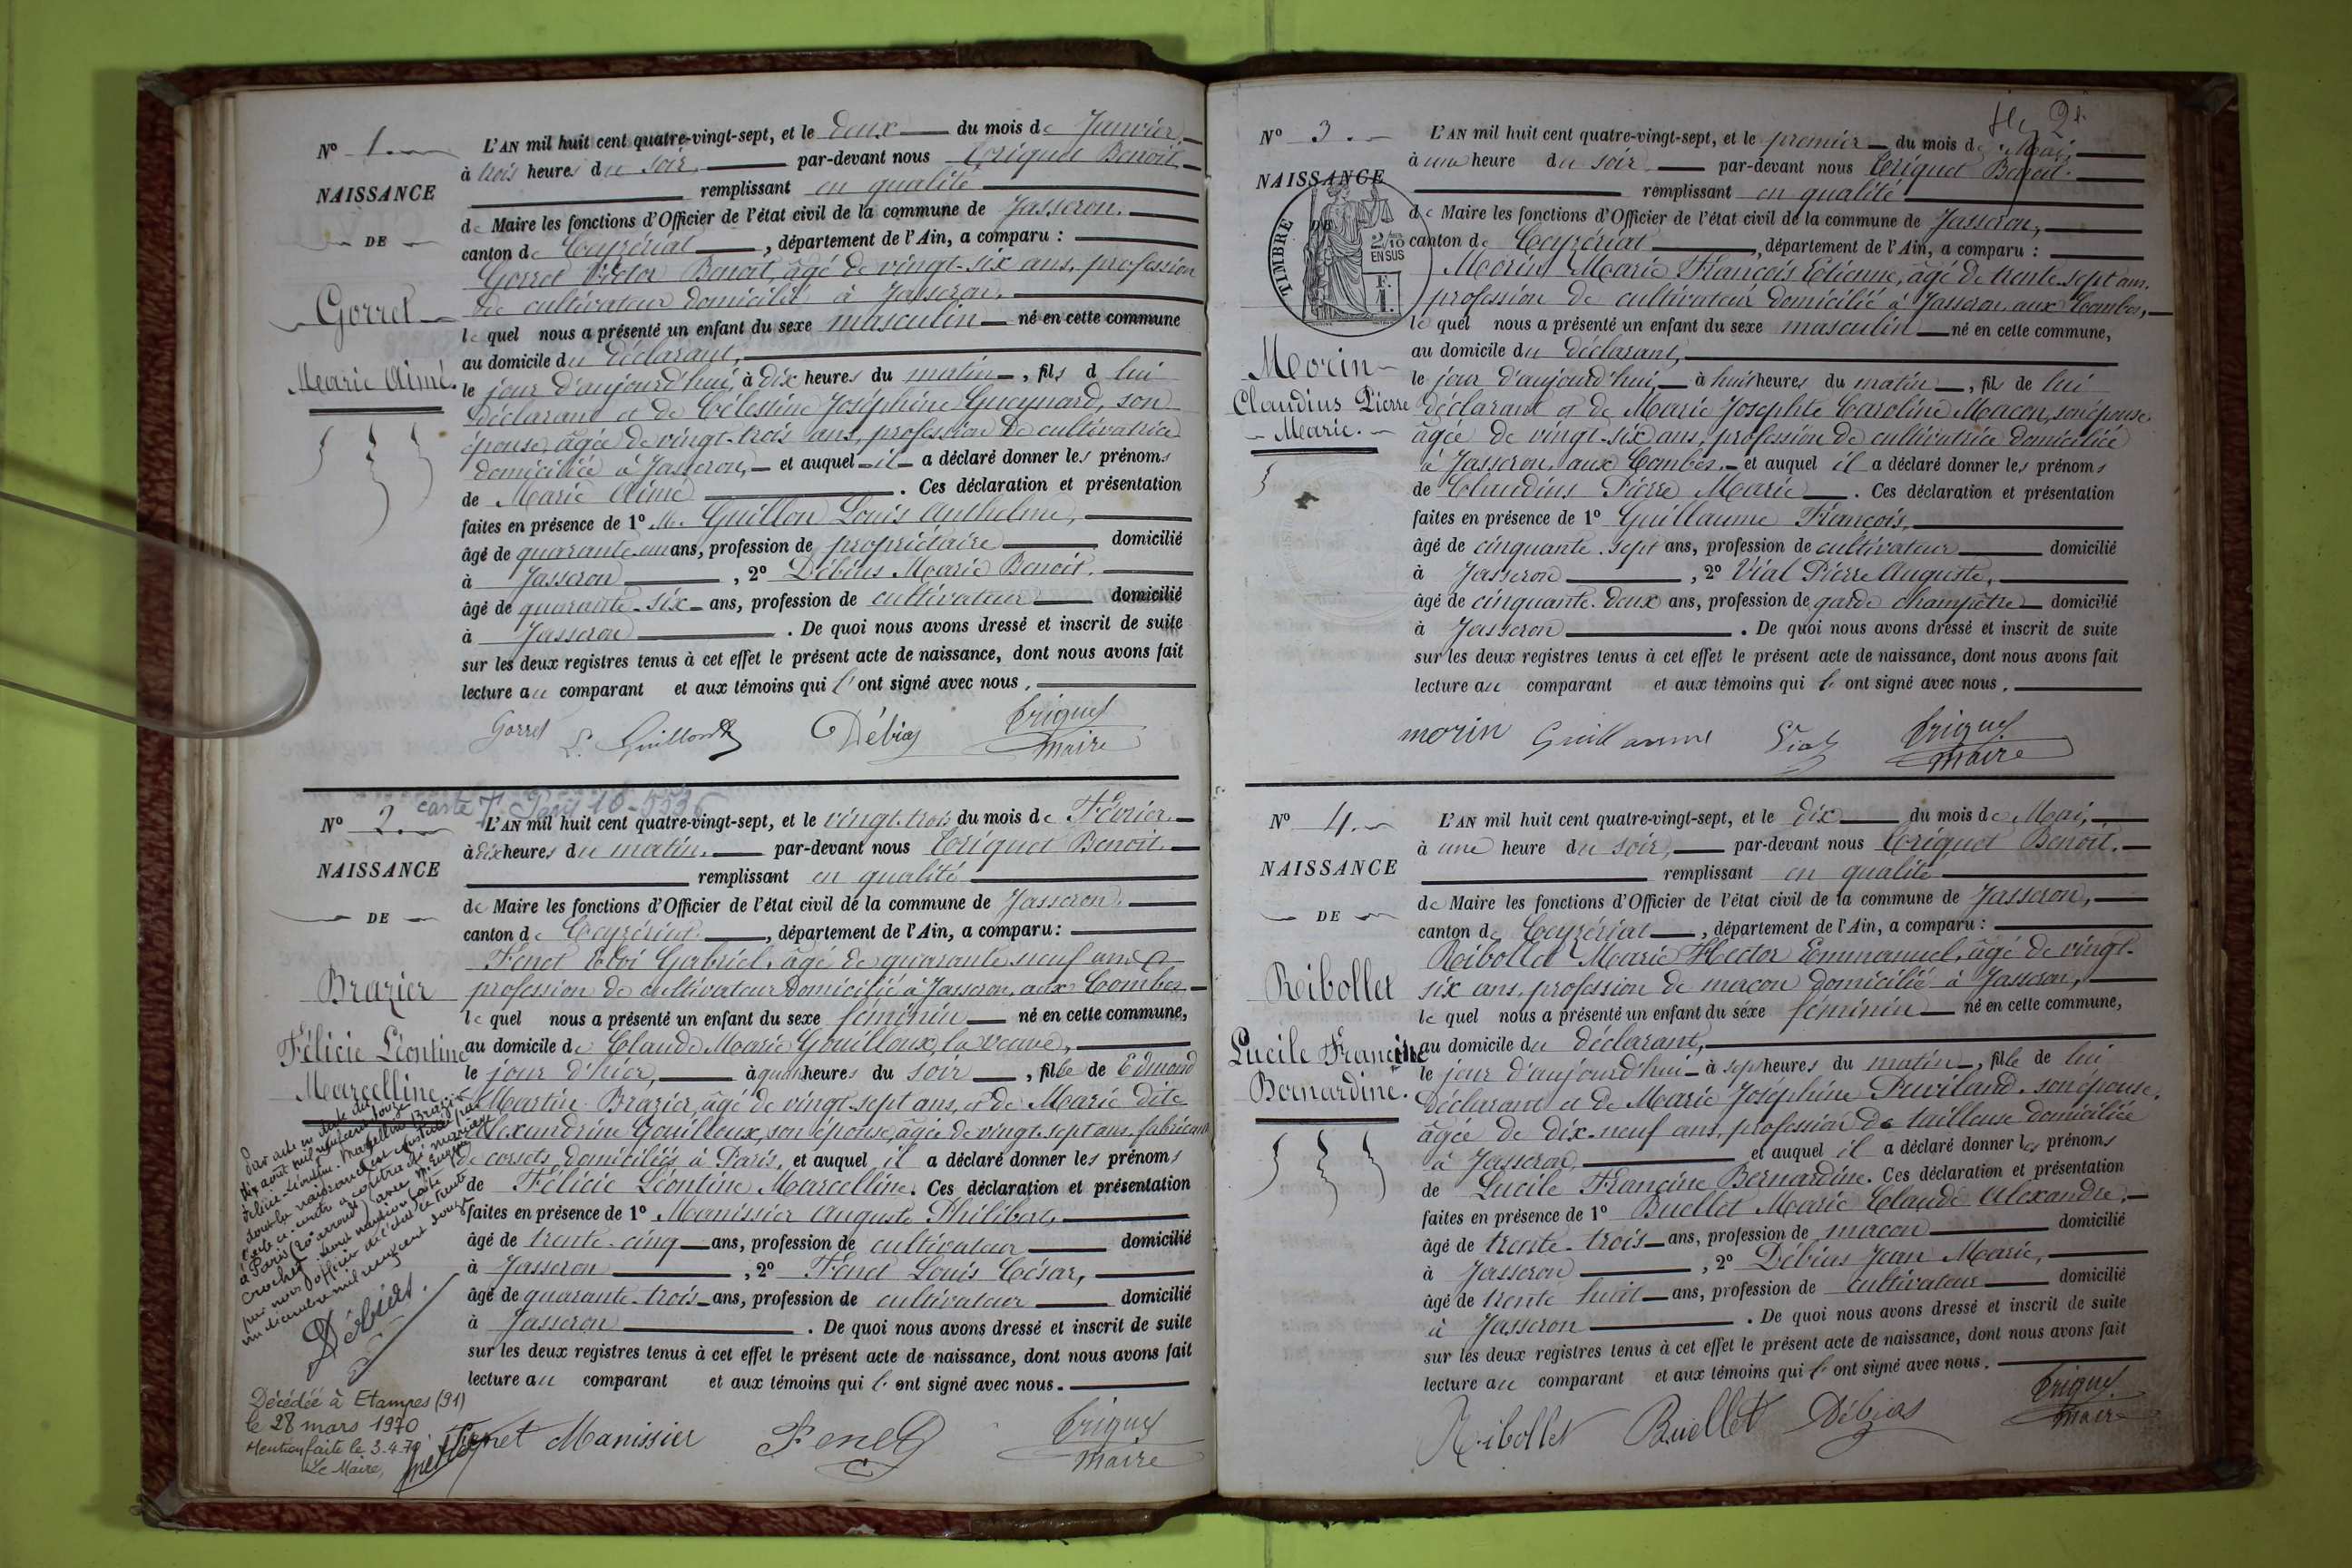 N° 1.
NAISSANCE
DE
Gorret
Marie Aimé.
L'AN mil huit cent quatre-vingt-sept, et le deux du mois de Janvier
à trois heures du soir, par-devant nous Criquet Benoit
remplissant en qualité
de Maire les fonctions d'Officier de l'état civil de la commune de Jasseron.
canton de Ceyzériat, département de l'Ain, a comparu :
Gorret Victor Benoit, âgé de vingt-six ans, profession
de cultivateur domicilié à Jasseron,
lequel nous a présenté un enfant du sexe masculin né en cette commune
au domicile du déclarant,
le jour d'aujourd'hui, à dix heures du matin, fils d lui
déclarant et de Célestine Joséphine Gueynard, son
épouse, âgée de vingt-trois ans, profession de cultivatrice
domiciliée à Jasseron, et auquel il a déclaré donner les prénoms
de Marie Aimé. Ces déclaration et présentation
faites en présence de 1° M. Guillon Louis Anthelme,
âgé de quarante-un ans, profession de propriétaire domicilié
à Jasseron, 2° Débias Marie Benoit.
âgé de quarante-six ans, profession de cultivateur domicilié
à Jasseron. De quoi nous avons dressé et inscrit de suite
sur les deux registres tenus à cet effet le présent acte de naissance, dont nous avons fait
lecture au comparant et aux témoins qui l'ont signé avec nous.
Gorret L. Guillon Débias Criquet
maire
carte T. Paris 16
N° 2.
NAISSANCE
DE
Brazier
Félicie Léontine
Marcelline
L'AN mil huit cent quatre-vingt-sept, et le vingt-trois du mois de Février
à dix heures du matin, par-devant nous Criquet Benoit
remplissant en qualité
de Maire les fonctions d'Officier de l'état civil de la commune de Jasseron.
canton de Ceyzériat, département de l'Ain, a comparu :
Fenet Eloi Gabriel, âgé de quarante neuf ans
profession de cultivateur domicilié à Jasseron, aux Combes
lequel nous a présenté un enfant du sexe féminin né en cette commune,
au domicile de Claude Marie Gouilloux, la veuve,
le jour d'hier, à quatre heures du soir, fille de Edmond
Martin Brazier, âgé de vingt-sept ans, et de Marie dite
Alexandrine Gouilloux, son épouse, âgée de vingt-sept ans, fabricants
de corsets domiciliés à Paris, et auquel il a déclaré donner les prénoms
de Félicie Léontine Marcelline. Ces déclaration et présentation
faites en présence de 1° Manissier Auguste Philibert,
âgé de trente-cinq ans, profession de cultivateur domicilié
à Jasseron, 2° Fenet Louis César,
âgé de quarante-trois ans, profession de cultivateur domicilié
à Jasseron. De quoi nous avons dressé et inscrit de suite
sur les deux registres tenus à cet effet le présent acte de naissance, dont nous avons fait
lecture au comparant et aux témoins qui l'ont signé avec nous.
Fenet Manissier Fenet Criquet
maire
Par acte en date du
dix août mil neuf cent douze
Félicie-Léontine-Marcelline Brazier
dont la naissance est constatée par
l'acte ci-contre a contracté mariage
à Paris (20e arrondt) avec Mr Eugène
Crochet dont mention faite
par nous officier de l'état le trente
un décembre mil neuf cent douze
Débias.
Décédée à Etampes (91)
le 28 mars 1970
Mention faite le 3.4.70
Le Maire,
fle 2e
N° 3.
NAISSANCE
DE
TIMBRE
2/10
EN SUS
F.
1.
Morin
Claudius Pierre
Marie.
L'AN mil huit cent quatre-vingt-sept, et le premier du mois de Mai,
à une heure du soir par-devant nous Criquet Benoit.
remplissant en qualité
de Maire les fonctions d'Officier de l'état civil de la commune de Jasseron,
canton de Ceyzériat, département de l'Ain, a comparu :
Morin Marie François Etienne, âgé de trente-sept ans.
profession de cultivateur domicilié à Jasseron, aux Combes,
lequel nous a présenté un enfant du sexe masculin né en cette commune,
au domicile du déclarant,
le jour d'aujourd'hui, à huit heures du matin, fils de lui
déclarant et de Marie Josephte Caroline Macon, son épouse.
âgée de vingt-six ans, profession de cultivatrice domiciliée
à Jasseron, aux Combes, et auquel il a déclaré donner les prénoms
de Claudius Pierre Marie. Ces déclaration et présentation
faites en présence de 1° Guillaume François,
âgé de cinquante-sept ans, profession de cultivateur domicilié
à Jasseron, 2° Vial Pierre Auguste,
âgé de cinquante-deux ans, profession de garde champêtre domicilié
à Jasseron. De quoi nous avons dressé et inscrit de suite
sur les deux registres tenus à cet effet le présent acte de naissance, dont nous avons fait
lecture au comparant et aux témoins qui l'ont signé avec nous.
morin Guillaume Vial Criquet
maire
N° 4.
NAISSANCE
DE
Ribollet
Lucile Francine
Bernardine.
L'AN mil huit cent quatre-vingt-sept, et le dix du mois de Mai,
à une heure du soir, par-devant nous Criquet Benoit.
remplissant en qualité
de Maire les fonctions d'Officier de l'état civil de la commune de Jasseron,
canton de Ceyzériat, département de l'Ain, a comparu :
Ribollet Marie Hector Emmanuel, âgé de vingt-
six ans, profession de maçon domicilié à Jasseron,
lequel nous a présenté un enfant du sexe féminin né en cette commune,
au domicile du déclarant,
le jour d'aujourd'hui à sept heures du matin, fille de lui
déclarant et de Marie Joséphine Puviland, son épouse,
âgée de dix-neuf ans, profession de tailleuse domiciliée
à Jasseron, et auquel il a déclaré donner les prénoms
de Lucile Francine Bernardine. Ces déclaration et présentation
faites en présence de 1° Buellet Marie Claude Alexandre,
âgé de trente-trois ans, profession de maçon domicilié
à Jasseron, 2° Débias Jean Marie,
âgé de trente huit ans, profession de cultivateur domicilié
à Jasseron. De quoi nous avons dressé et inscrit de suite
sur les deux registres tenus à cet effet le présent acte de naissance, dont nous avons fait
lecture au comparant et aux témoins qui l'ont signé avec nous.
Ribollet Buellet Débias Criquet
maire